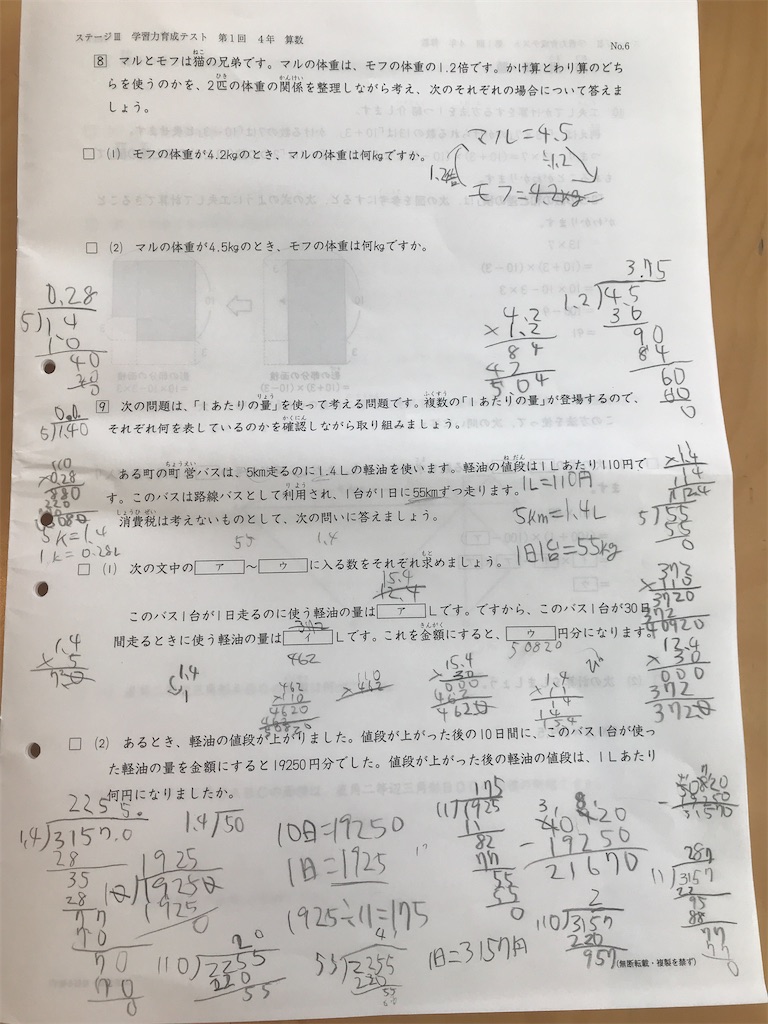 ステージⅢ 学習力育成テスト 第1回 4年 算数
No.6
8 マルとモフは猫の兄弟です。マルの体重は、モフの体重の1.2倍です。かけ算とわり算のどち
らを使うのかを、2匹の体重の関係を整理しながら考え、次のそれぞれの場合について答えま
しょう。
マル=4.5
1.2倍
÷1.2
モフ=4.2kg
□(1) モフの体重が4.2kgのとき、マルの体重は何kgですか。
□(2) マルの体重が4.5kgのとき、モフの体重は何kgですか。
0.28
5)1.4
1.0
40
3.75
1.2)4.5
36
90
84
60
60
0
4.2
×1.2
84
42
5.04
9 次の問題は、「1あたりの量」を使って考える問題です。複数の「1あたりの量」が登場するので、
それぞれ何を表しているのかを確認しながら取り組みましょう。
ある町の町営バスは、5km走るのに1.4Lの軽油を使います。軽油の値段は1Lあたり110円で
す。このバスは路線バスとして利用され、1台が1日に55kmずつ走ります。
消費税は考えないものとして、次の問いに答えましょう。
1L=110円
5km=1.4L
1日1台=55kg
5K=1.4
1K=0.28L
5)55
55
0
55
1.4
□(1) 次の文中の ア ~ ウ に入る数をそれぞれ求めましょう。
15.4
12.4
このバス1台が1日走るのに使う軽油の量は ア Lです。ですから、このバス1台が30日
間走るときに使う軽油の量は イ Lです。これを金額にすると、 ウ 円分になります。
462
50820
1.4
×5
462
×110
4620
462
50820
110
×462
15.4
×30
000
462
4620
1.4
×11
14
14
15.4
12.4
×30
000
372
3720
□(2) あるとき、軽油の値段が上がりました。値段が上がった後の10日間に、このバス1台が使っ
た軽油の量を金額にすると19250円分でした。値段が上がった後の軽油の値段は、1Lあたり
何円になりましたか。
2255.
1.4)3157.0
28
35
28
77
70
70
70
0
1.4)50
1925
10)19250
1925
0
10日=19250
1日=1925
1925÷11=175
175
11)1925
11
82
77
55
55
0
40420
-19250
21670
50820
-19250
31570
287
11)3157
22
95
88
77
77
0
20
110)2255
220
55
4
55)2255
220
55
1日=3157円
2
110)3157
220
957
(無断転載・複製を禁ず)